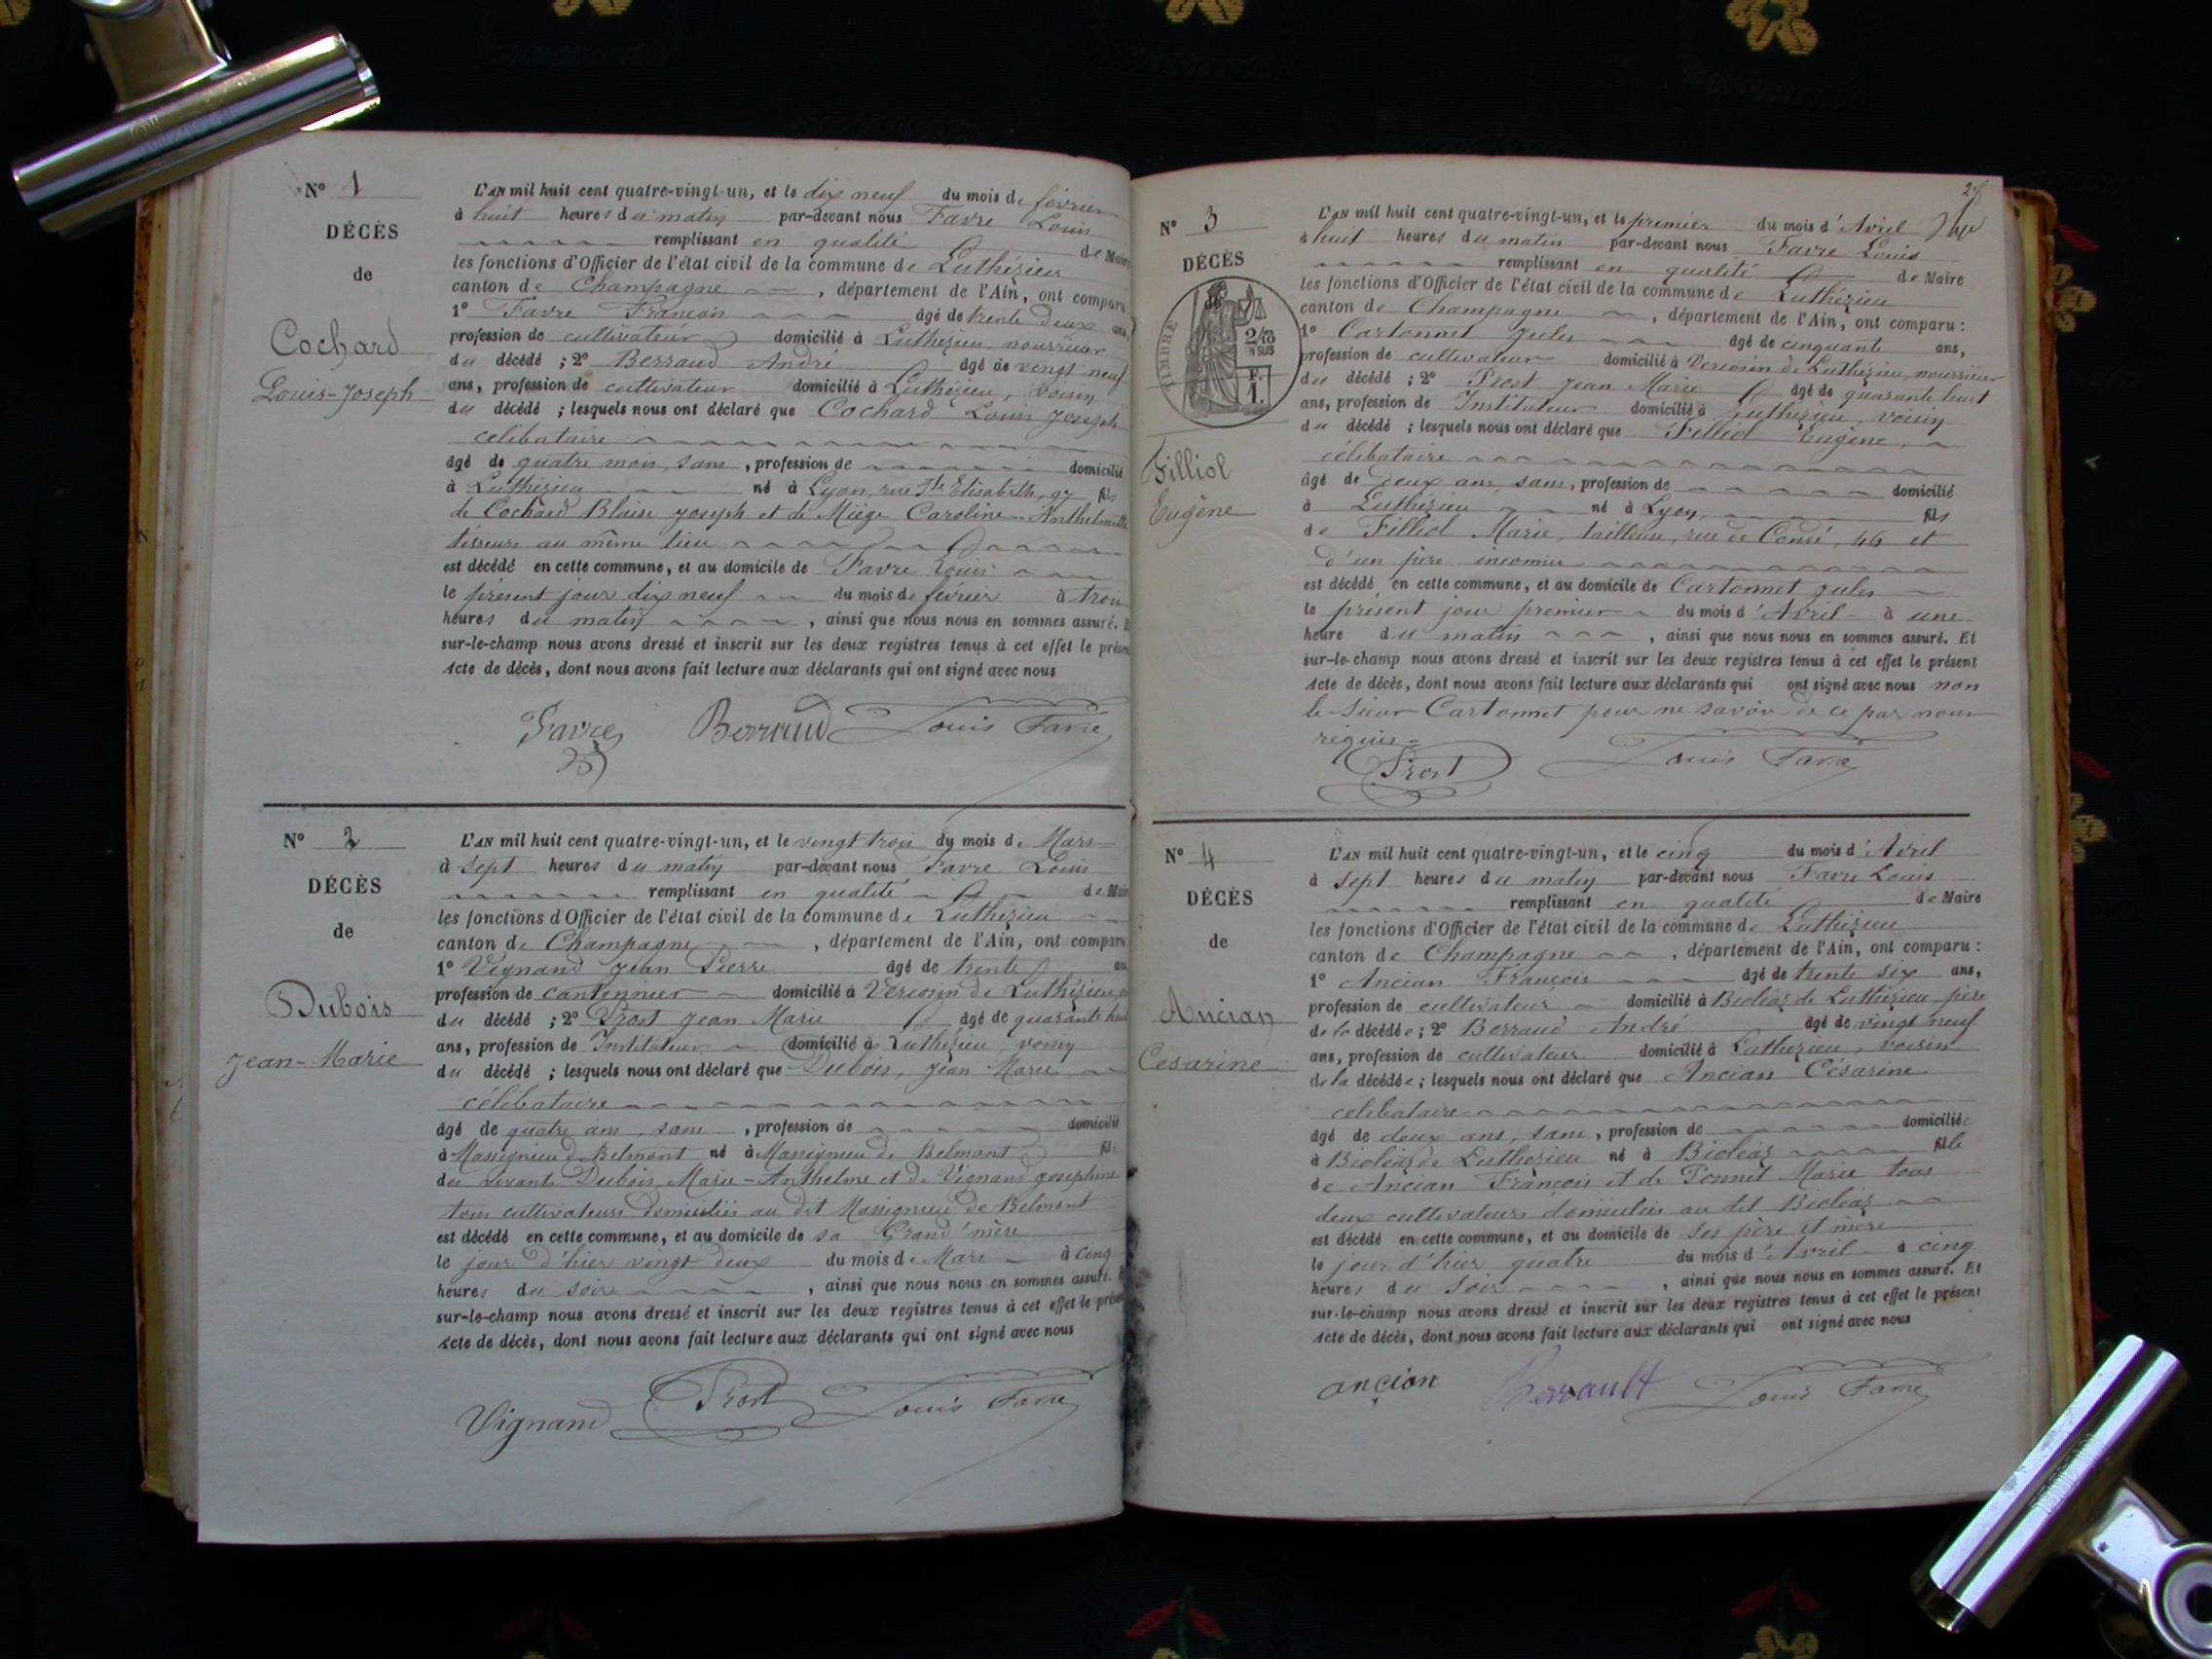 N° 1
DÉCÈS
de
Cochard
Louis-Joseph
L'AN mil huit cent quatre-vingt-un, et le dix neuf du mois de février
à huit heures du matin par-devant nous Favre Louis
remplissant en qualité de Maire
les fonctions d'Officier de l'état civil de la commune de Luthézieu
canton de Champagne, département de l'Ain, ont comparu
1° Favre François âgé de trente deux ans,
profession de cultivateur domicilié à Luthézieu, nourricier
du décédé ; 2° Berraud André âgé de vingt neuf
ans, profession de cultivateur domicilié à Luthézieu, voisin
du décédé ; lesquels nous ont déclaré que Cochard Louis Joseph
célibataire
âgé de quatre mois, sans, profession de domicilié
à Luthézieu né à Lyon, rue Ste Elisabeth, 97 fils
de Cochard Blaise Joseph et de Miège Caroline-Anthelmette
tisseurs au même lieu
est décédé en cette commune, et au domicile de Favre Louis
le présent jour dix neuf du mois de février à trois
heures du matin, ainsi que nous nous en sommes assuré. E
sur-le-champ nous avons dressé et inscrit sur les deux registres tenus à cet effet le présen
Acte de décès, dont nous avons fait lecture aux déclarants qui ont signé avec nous
Favre Berraud Louis Favre
N° 2
DÉCÈS
de
Dubois
Jean-Marie
L'AN mil huit cent quatre-vingt-un, et le vingt trois du mois de Mars
à sept heures du matin par-devant nous Favre Louis
remplissant en qualité de Maire
les fonctions d'Officier de l'état civil de la commune de Luthézieu
canton de Champagne, département de l'Ain, ont comparu
1° Vignand Jean Pierre âgé de trente an
profession de cantonnier domicilié à Vercosin de Luthézieu,
du décédé ; 2° Prost Jean Marie âgé de quarante huit
ans, profession de Instituteur domicilié à Luthézieu, voisin
du décédé ; lesquels nous ont déclaré que Dubois, Jean Marie
célibataire
âgé de quatre ans, sans, profession de domicilié
à Massignieu de Belmont né à Massignieu de Belmont fils
des vivants Dubois, Marie-Anthelme et de Vignand Josephine
tous cultivateurs domiciliés au dit Massignieu de Belmont
est décédé en cette commune, et au domicile de sa Grand'mère
le jour d'hier vingt deux du mois de Mars à cinq
heures du soir, ainsi que nous nous en sommes assuré. E
sur-le-champ nous avons dressé et inscrit sur les deux registres tenus à cet effet le présen
Acte de décès, dont nous avons fait lecture aux déclarants qui ont signé avec nous
Vignand Prost Louis Favre
N° 3
DÉCÈS
TIMBRE
2/10
EN SUS
F.
1.
Filliol
Eugène
L'AN mil huit cent quatre-vingt-un, et le premier du mois d'Avril
à huit heures du matin par-devant nous Favre Louis
remplissant en qualité de Maire
les fonctions d'Officier de l'état civil de la commune de Luthézieu
canton de Champagne, département de l'Ain, ont comparu :
1° Cartonnet Jules âgé de cinquante ans,
profession de cultivateur domicilié à Vercosin de Luthézieu, nourricier
du décédé ; 2° Prost Jean Marie âgé de quarante huit
ans, profession de Instituteur domicilié à Luthézieu, voisin
du décédé ; lesquels nous ont déclaré que Filliol Eugène,
célibataire
âgé de deux ans, sans, profession de domicilié
à Luthézieu né à Lyon, fils
de Filliol Marie, tailleuse, rue de Condé, 46 et
d'un père inconnu
est décédé en cette commune, et au domicile de Cartonnet Jules
le présent jour premier du mois d'Avril à une
heure du matin, ainsi que nous nous en sommes assuré. Et
sur-le-champ nous avons dressé et inscrit sur les deux registres tenus à cet effet le présent
Acte de décès, dont nous avons fait lecture aux déclarants qui ont signé avec nous non
le Sieur Cartonnet pour ne savoir de ce par nous
requis
Prost Louis Favre
N° 4
DÉCÈS
de
Ancian
Césarine
L'AN mil huit cent quatre-vingt-un, et le cinq du mois d'Avril
à sept heures du matin par-devant nous Favre Louis
remplissant en qualité de Maire
les fonctions d'Officier de l'état civil de la commune de Luthézieu
canton de Champagne, département de l'Ain, ont comparu :
1° Ancian François âgé de trente six ans,
profession de cultivateur domicilié à Bioléaz de Luthézieu, père
de la décédée ; 2° Berraud André âgé de vingt neuf
ans, profession de cultivateur domicilié à Luthézieu, voisin
de la décédée ; lesquels nous ont déclaré que Ancian Césarine
célibataire
âgé de deux ans, sans, profession de domiciliée
à Bioléaz de Luthézieu né à Bioléaz fille
de Ancian François et de Ponnet Marie tous
deux cultivateurs domiciliés au dit Bioléaz
est décédé en cette commune, et au domicile de ses père et mère
le jour d'hier quatre du mois d'Avril à cinq
heures du soir, ainsi que nous nous en sommes assuré. Et
sur-le-champ nous avons dressé et inscrit sur les deux registres tenus à cet effet le présent
Acte de décès, dont nous avons fait lecture aux déclarants qui ont signé avec nous
ancian Berrault Louis Favre